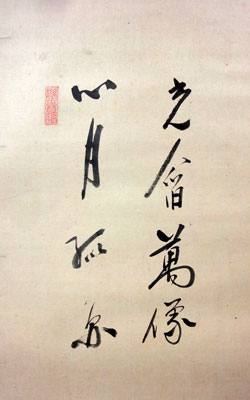 光萬像
心月孤圓